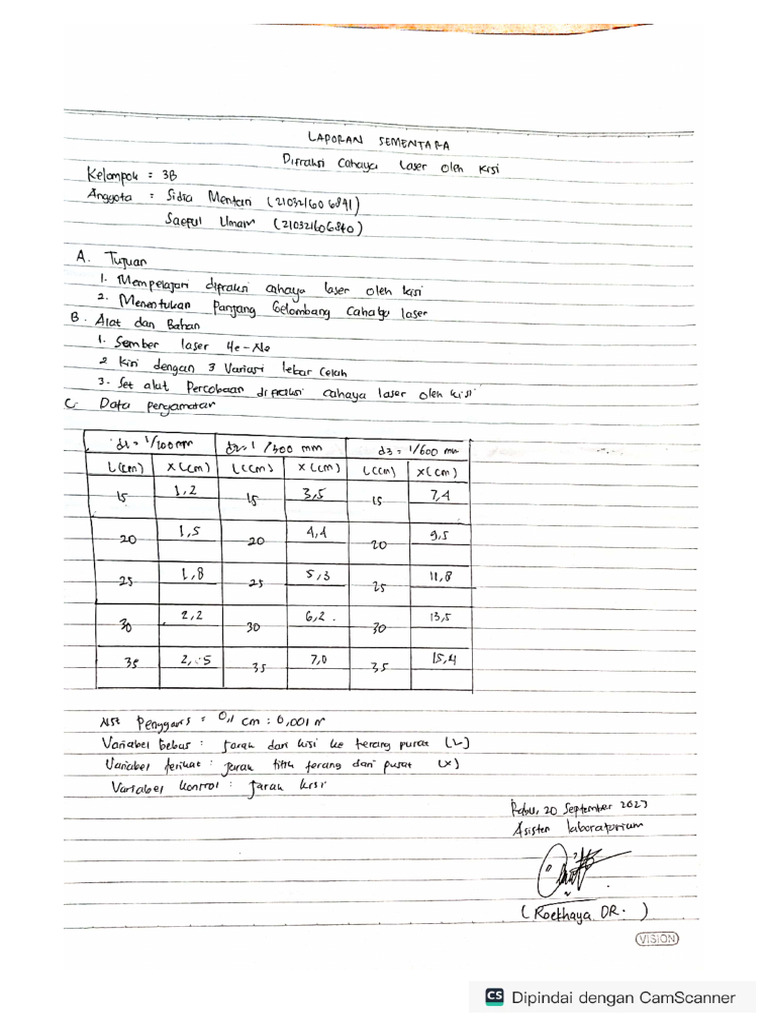 LAPORAN SEMENTARA
Difraksi Cahaya Laser oleh Kisi
Kelompok = 3B
Anggota = Sidra Mentari (210321606841)
Saeful Umam (210321606840)
A. Tujuan
1. Mempelajari difraksi cahaya laser oleh kisi
2. Menentukan Panjang Gelombang Cahaya laser
B. Alat dan Bahan
1. Sumber laser He-Ne
2 Kisi dengan 3 Variasi lebar Celah
3. Set alat Percobaan difraksi cahaya laser oleh kisi
C. Data pengamatan
d1 = 1/100 mm d2 = 1/300 mm d3 = 1/600 mm
L(cm) X(cm) L(cm) X(cm) L(cm) X(cm)
15 1,2 15 3,5 15 7,4
20 1,5 20 4,4 20 9,5
25 1,8 25 5,3 25 11,8
30 2,2 30 6,2 30 13,5
35 2,5 35 7,0 35 15,4
Nst Penggaris = 0,1 cm = 0,001 m
Variabel bebas : jarak dari kisi ke terang pusat (L)
Variabel terikat : jarak titik terang dari pusat (X)
Variabel kontrol : jarak kisi
Rabu, 20 September 2023
Asisten laboratorium
(Roekhaya DR. )
VISION
CS Dipindai dengan CamScanner